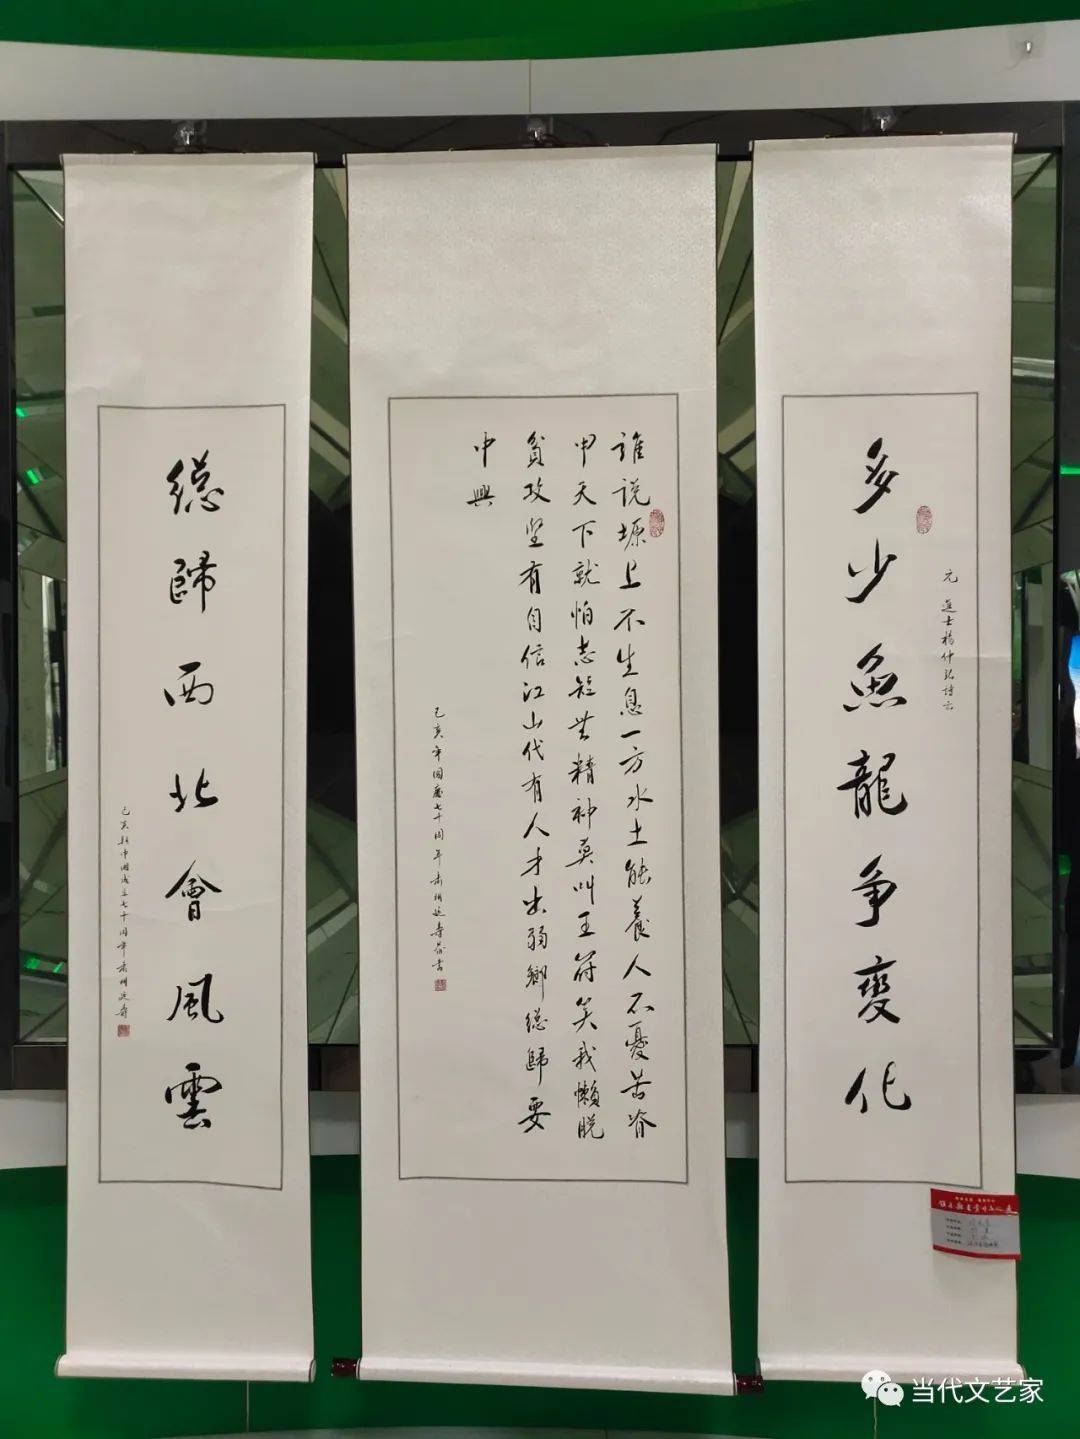 多少魚龍争變化
元 進士楊仲弘詩云
誰说塬上不生息一方水土能養人不憂苦脊
甲天下就怕志短無精神莫叫王符笑我懒脱
貧攻坚有自信江山代有人才出弱鄉總歸要
中興
己亥年國慶七十周年
總歸西北會風雲
己亥新中國成立七十周年
当代文艺家